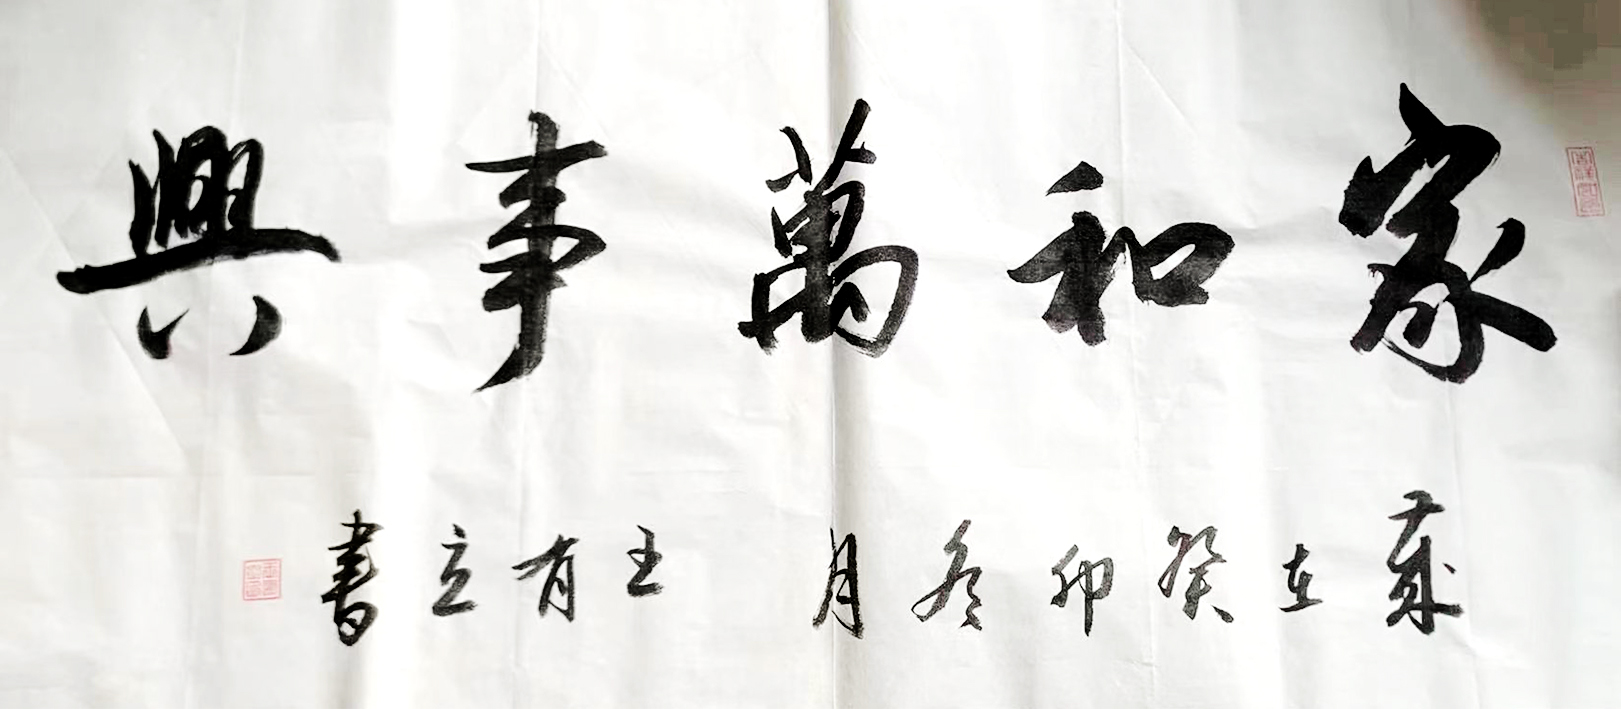 家和萬事興
歲在癸卯冬月 王有立書